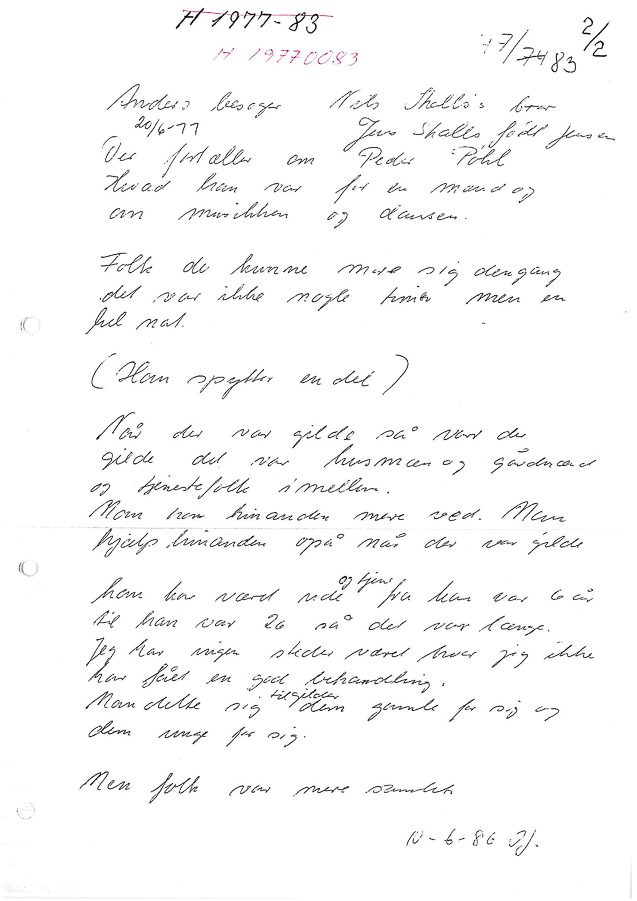 H 1977-83
H 19770083
77/7483 2/2
Anders besøger Nils Skallós bror
20/6-77 Jens Skalls født Jensen
Der fortæller om Peder Pohl
Hvad han var for en mand og
om musikken og dansen.
Folk de kunne more sig dengang
det var ikke nogle timer men en
hel nat.
(Han spytter en del)
Når der var gilde så var der
gilde det var husmænd og gårdmænd
og tjenestefolk imellem.
Man kom hinanden mere ved. Man
hjalp hinanden også når der var gilde
han har været ude og tjene fra han var 6 år
til han var 26 så det var længe.
Jeg har ingen steder været hvor jeg ikke
har fået en god behandling.
Man delte sig til gilder dem gamle for sig og
dem unge for sig.
Men folk var mere samlet
10-6-86